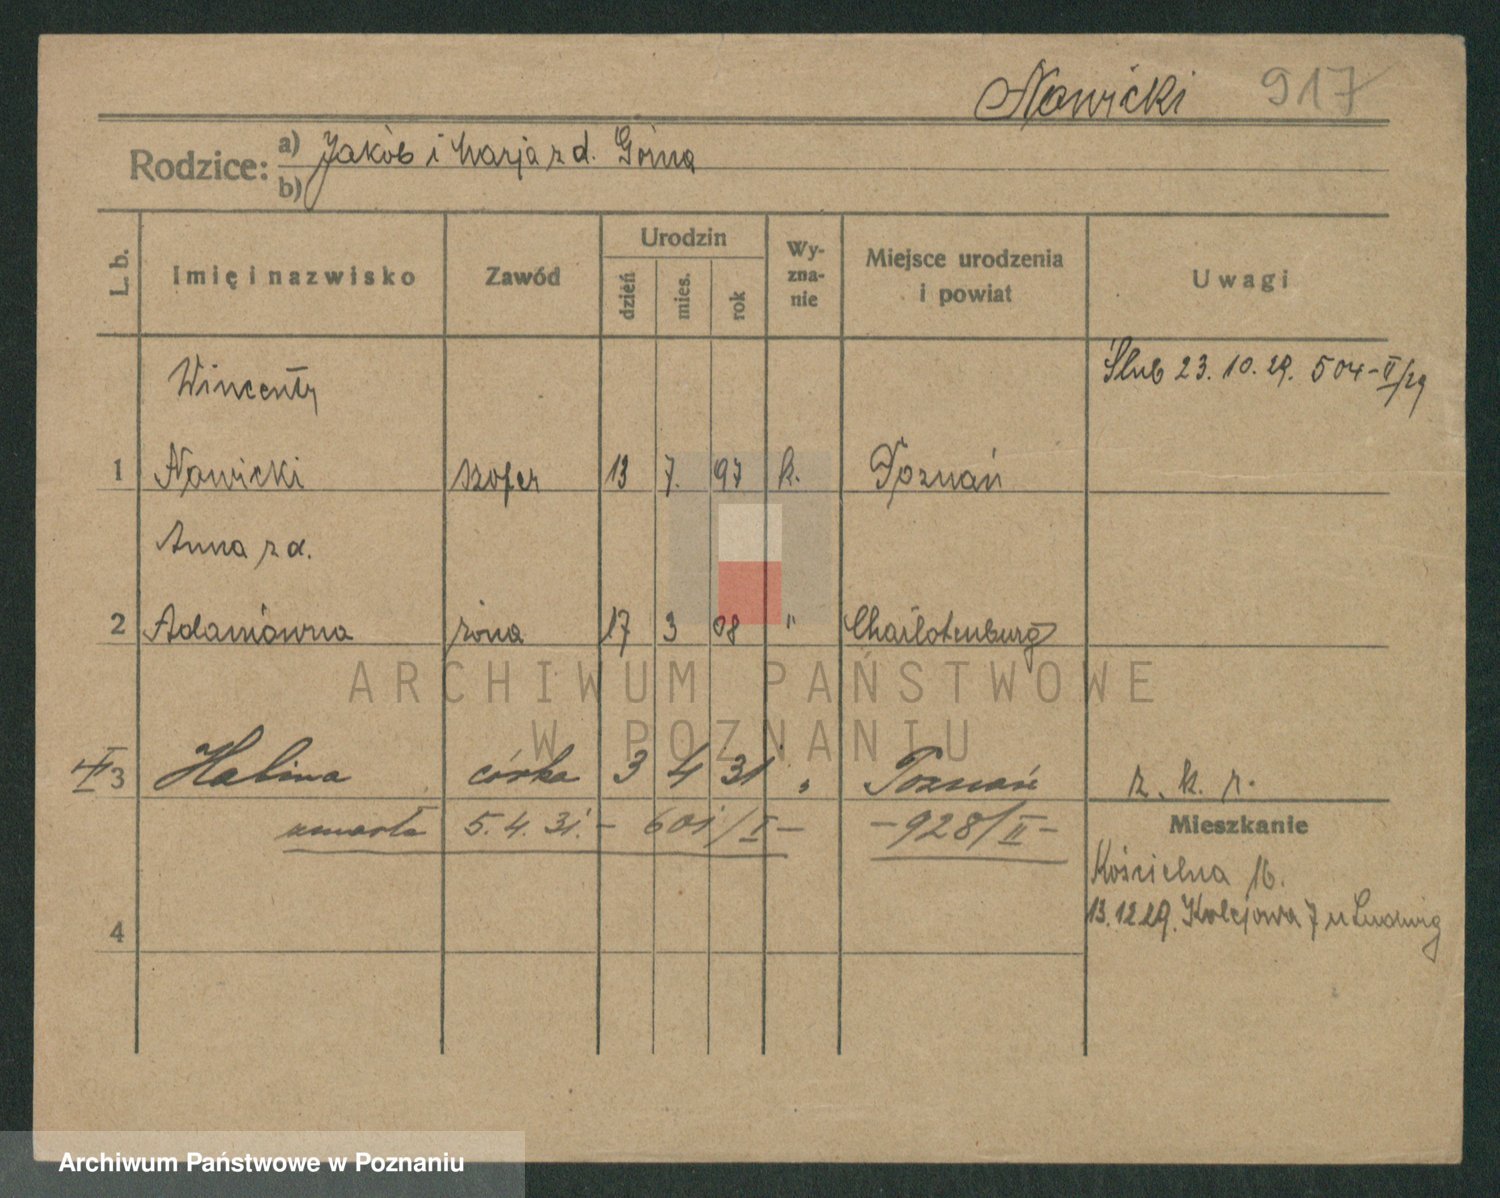 Nowicki 917
Rodzice: a) Jakób i Marja z d. Górna
b)
L. b. Imię i nazwisko Zawód Urodzin dzień mies. rok Wy-zna-nie Miejsce urodzenia i powiat Uwagi
Wincenty
Ślub 23. 10. 29. 504-II/29
1 Nowicki szofer 13 7. 97 k. Poznań
Anna z d.
2 Adamówna żona 17 3 08 " Charlotenburg
ARCHIWUM PAŃSTWOWE
W POZNANIU
3 Halina córka 3 4 31 " Poznań r. k. p.
umarła 5. 4. 31. - 601/I - - 928/II -
Mieszkanie
Kościelna 16.
13.12.29. Kolejowa 7 u Ludwig
4
Archiwum Państwowe w Poznaniu